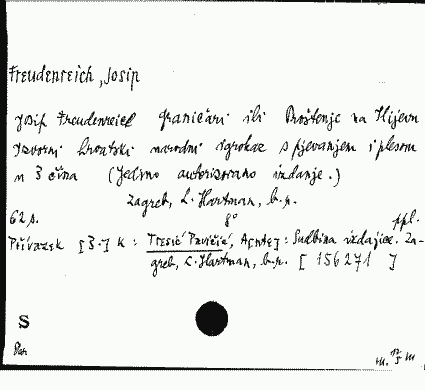 Freudenreich, Josip
Josip Freudenreich Graničari ili Proštenje na Ilijevu
Izvorni hrvatski narodni igrokaz s pjevanjem i plesom
u 3 čina (Jedino autorizovano izdanje.)
Zagreb, L. Hartman, b.g.
62 s. 8° ppl.
Přívazek [3.] K: Tresić Pavičić, A[nte]: Sudbina izdajice. Za-
greb, L. Hartman, b.g. [156271]
S